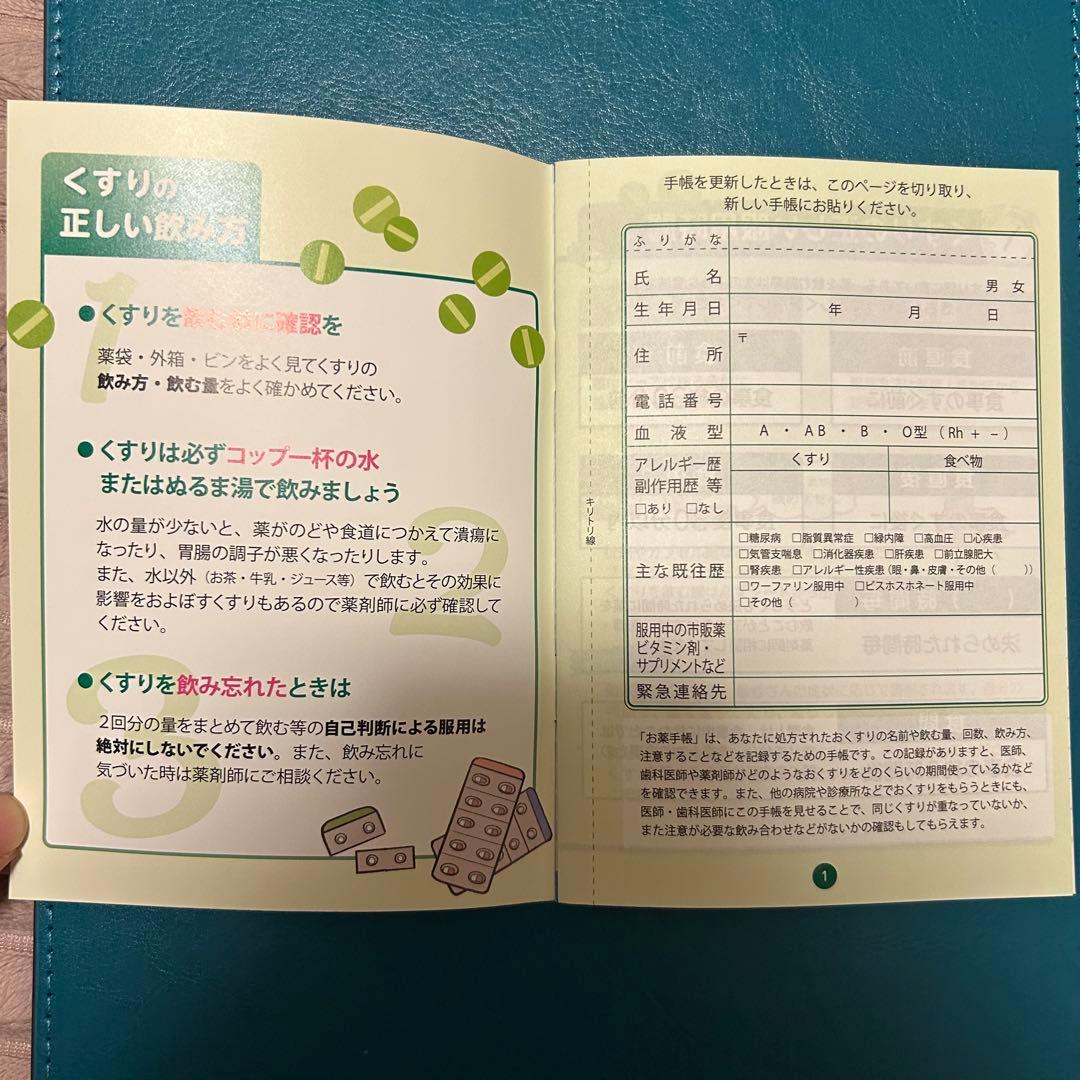 くすりの
正しい飲み方
1
●くすりを飲む前に確認を
薬袋・外箱・ビンをよく見てくすりの
飲み方・飲む量をよく確かめてください。
2
●くすりは必ずコップ一杯の水
またはぬるま湯で飲みましょう
水の量が少ないと、薬がのどや食道につかえて潰瘍に
なったり、胃腸の調子が悪くなったりします。
また、水以外（お茶・牛乳・ジュース等）で飲むとその効果に
影響をおよぼすくすりもあるので薬剤師に必ず確認して
ください。
3
●くすりを飲み忘れたときは
2回分の量をまとめて飲む等の自己判断による服用は
絶対にしないでください。また、飲み忘れに
気づいた時は薬剤師にご相談ください。
キリトリ線
手帳を更新したときは、このページを切り取り、
新しい手帳にお貼りください。
ふりがな
氏名 男 女
生年月日 年 月 日
住所 〒
電話番号
血液型 A ・ AB ・ B ・ O型 （Rh + −）
アレルギー歴 くすり 食べ物
副作用歴 等
□あり □なし
主な既往歴
□糖尿病 □脂質異常症 □緑内障 □高血圧 □心疾患
□気管支喘息 □消化器疾患 □肝疾患 □前立腺肥大
□腎疾患 □アレルギー性疾患（眼・鼻・皮膚・その他（ ））
□ワーファリン服用中 □ビスホスホネート服用中
□その他（ ）
服用中の市販薬
ビタミン剤・
サプリメントなど
緊急連絡先
「お薬手帳」は、あなたに処方されたおくすりの名前や飲む量、回数、飲み方、
注意することなどを記録するための手帳です。この記録がありますと、医師、
歯科医師や薬剤師がどのようなおくすりをどのくらいの期間使っているかなど
を確認できます。また、他の病院や診療所などでおくすりをもらうときにも、
医師・歯科医師にこの手帳を見せることで、同じくすりが重なっていないか、
また注意が必要な飲み合わせなどがないかの確認もしてもらえます。
1